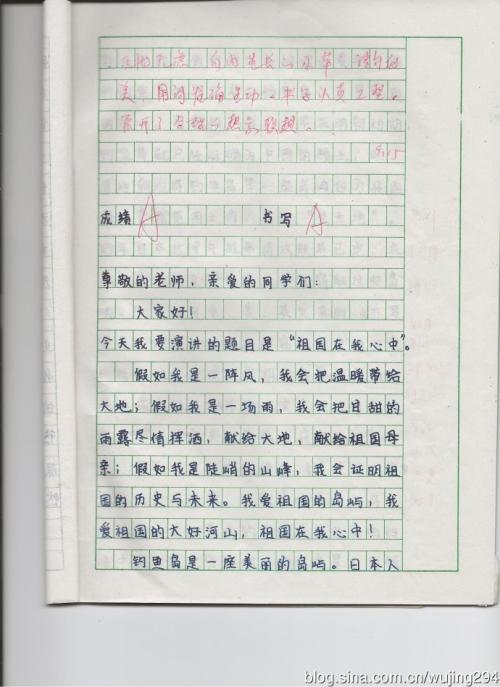 美,用词准确生动。书写认真工整。
展开了合理的想象联想。
9.15
成绩 A 书写 A
尊敬的老师,亲爱的同学们:
大家好!
今天我要演讲的题目是“祖国在我心中”。
假如我是一阵风,我会把温暖带给
大地;假如我是一场雨,我会把甘甜的
雨露尽情挥洒,献给大地,献给祖国母
亲;假如我是陡峭的山峰,我会证明祖
国的历史与未来。我爱祖国的岛屿,我
爱祖国的大好河山,祖国在我心中!
钓鱼岛是一座美丽的岛屿。日本人
blog.sina.com.cn/wujing294